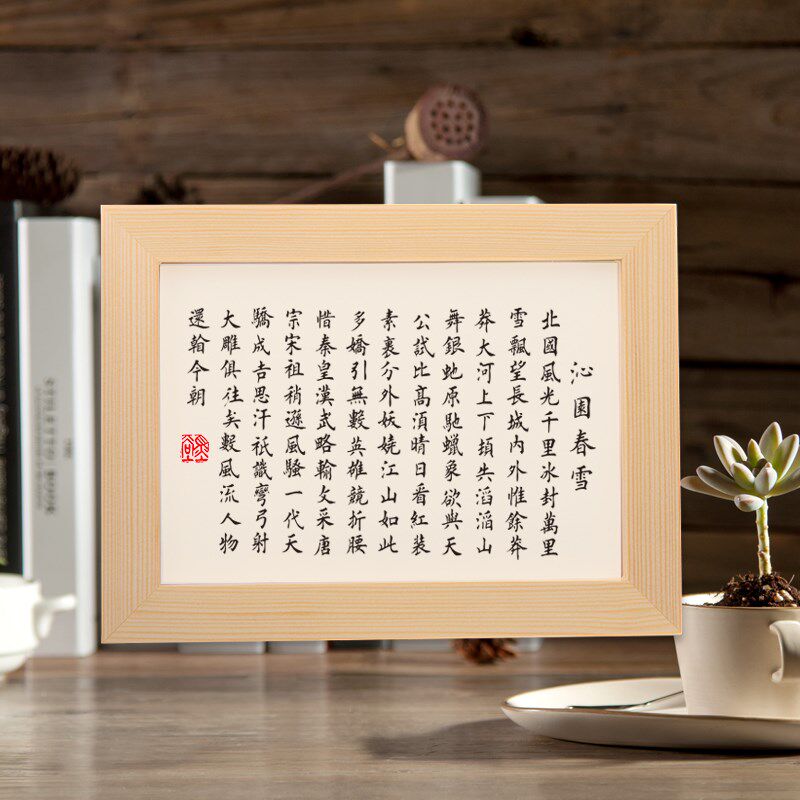 沁園春雪
北國風光千里冰封萬里
雪飄望長城內外惟餘莽
莽大河上下頓失滔滔山
舞銀蛇原馳蠟象欲與天
公試比高須晴日看紅裝
素裹分外妖嬈江山如此
多嬌引無數英雄競折腰
惜秦皇漢武略輸文采唐
宗宋祖稍遜風騷一代天
驕成吉思汗祇識彎弓射
大雕俱往矣數風流人物
還看今朝